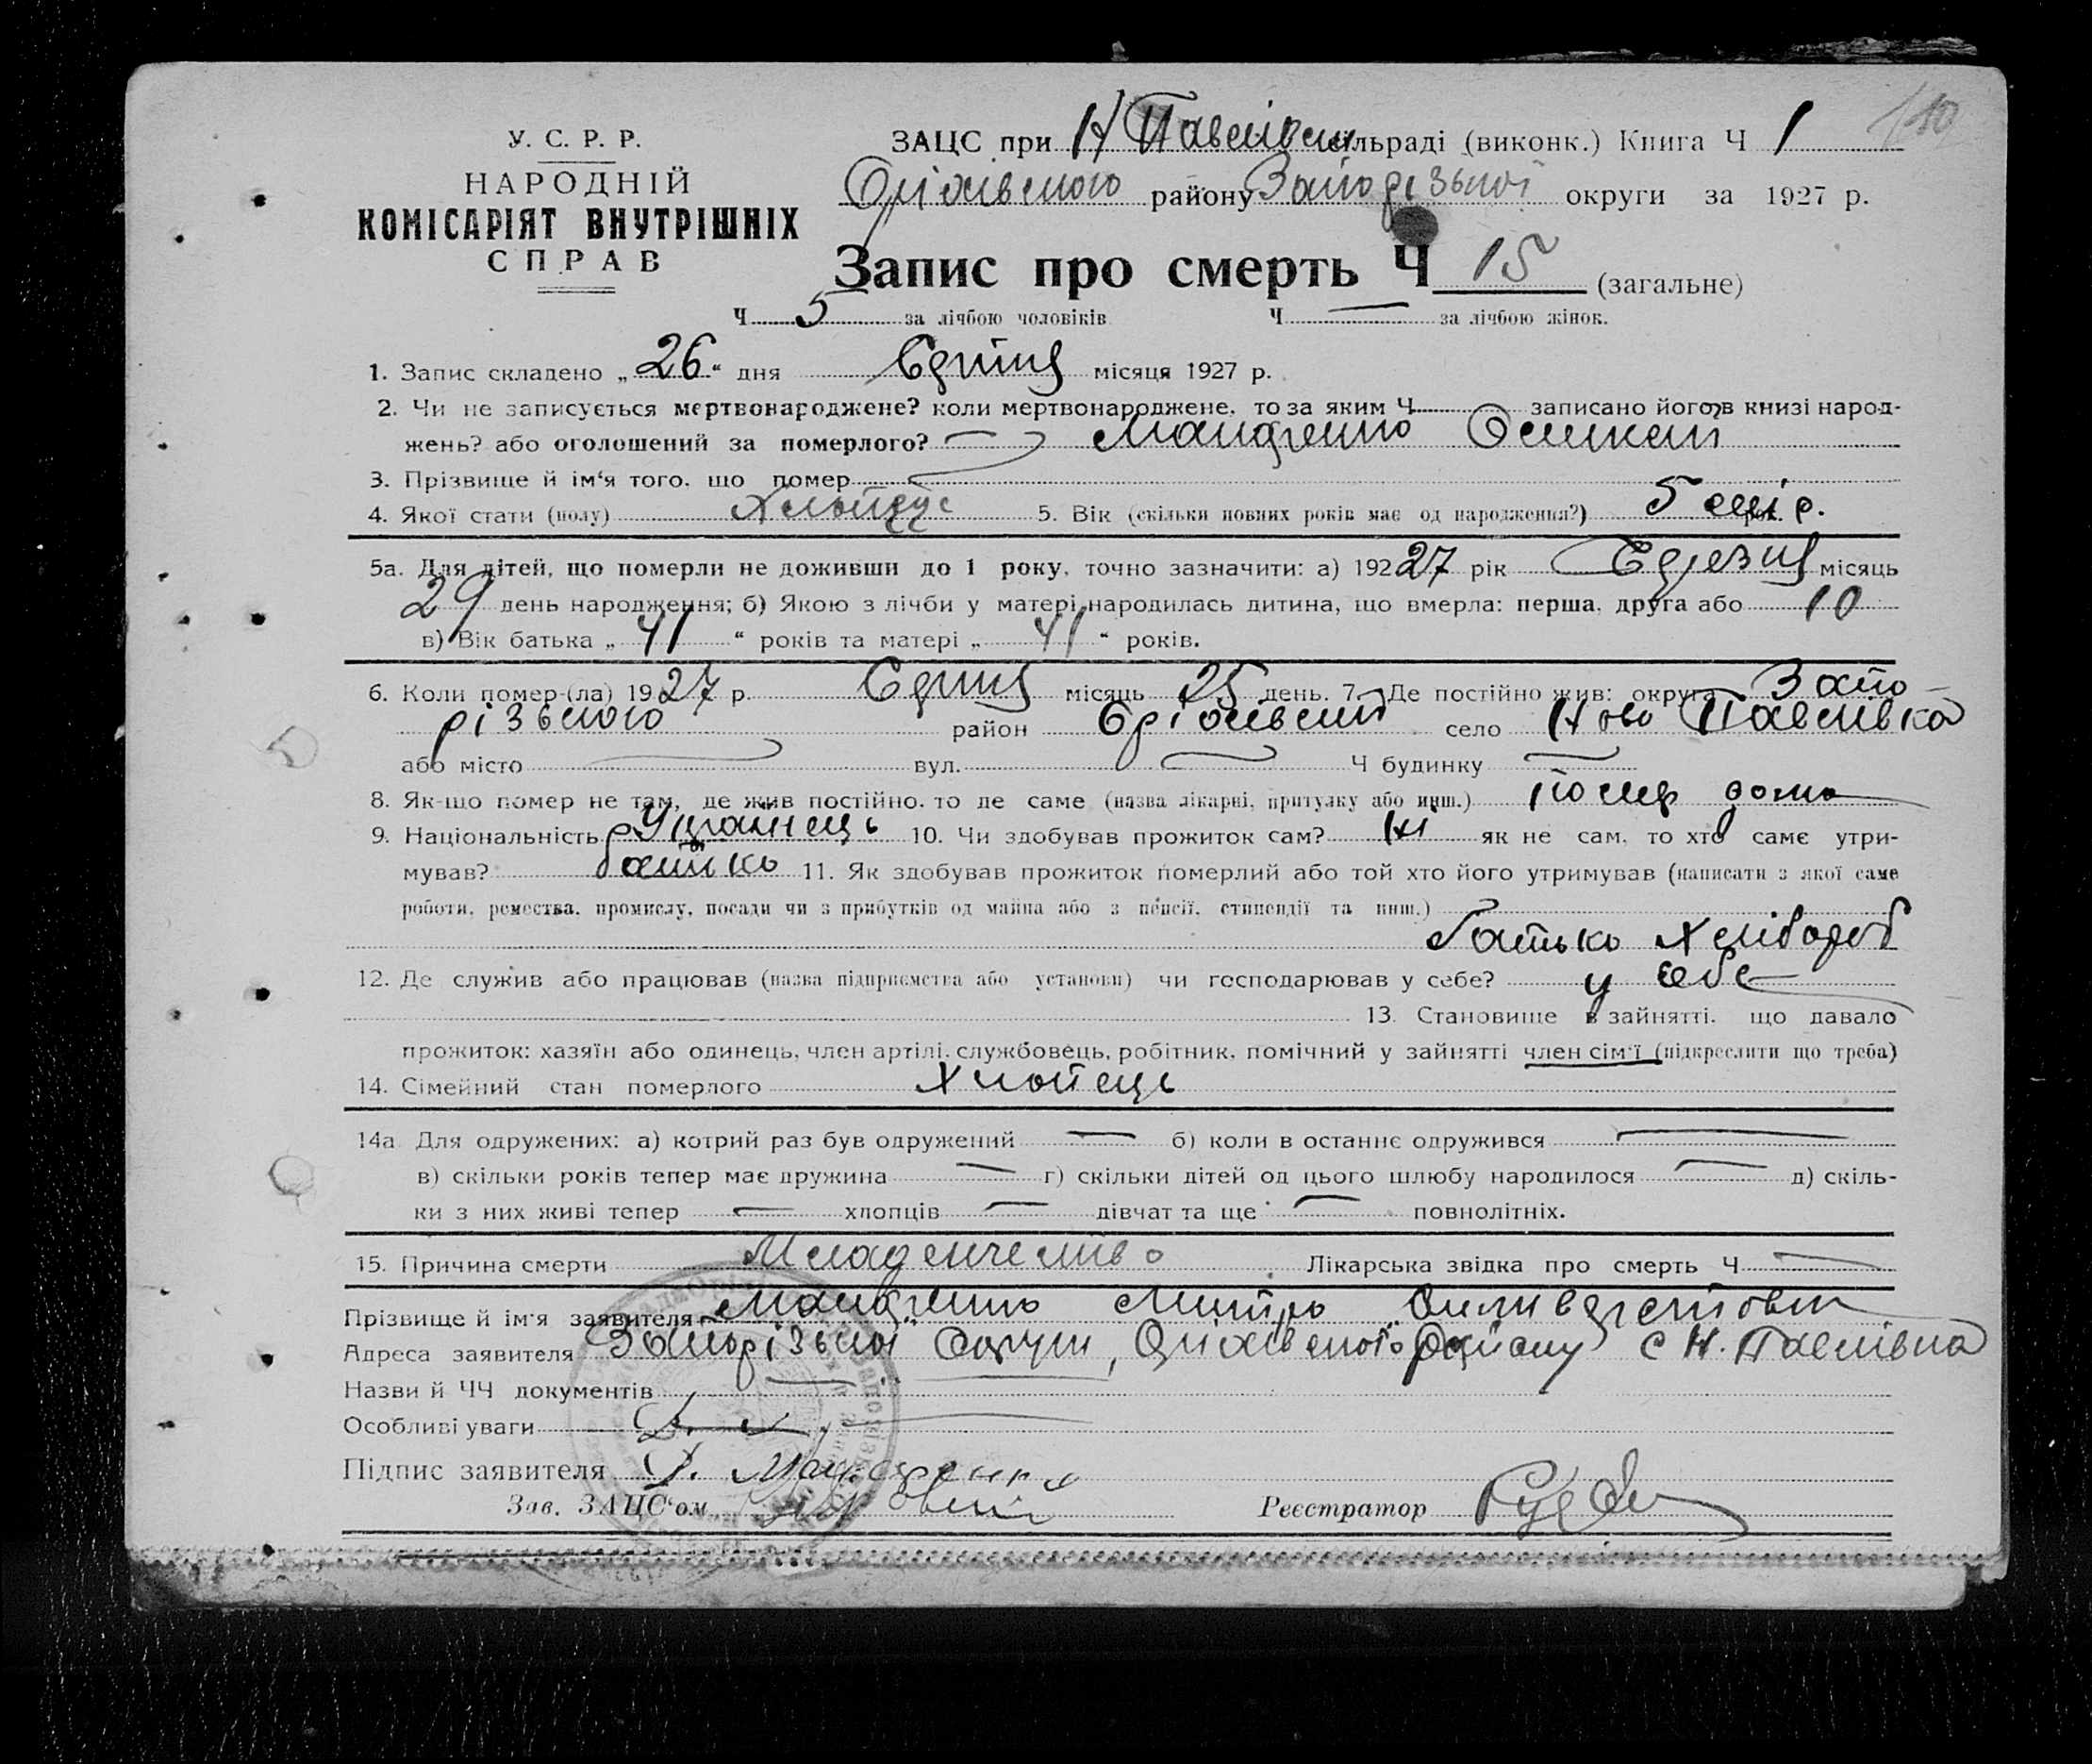 У. С. Р. Р.
НАРОДНІЙ
КОМІСАРІЯТ ВНУТРІШНІХ
СПРАВ
110
ЗАЦС при Н Павлівськ сільраді (виконк.) Книга Ч 1
Оріхівського району Запорізької округи за 1927 р.
Запис про смерть Ч 15 (загальне)
Ч 5 за лічбою чоловіків Ч — за лічбою жінок.
1. Запис складено „ 26 “ дня місяця 1927 р.
2. Чи не записується мертвонароджене? коли мертвонароджене, то за яким Ч записано його в книзі народ-
жень? або оголошений за померлого? —
3. Прізвище й ім‘я того, що помер
4. Якої стати (полу) 5. Вік (скільки повних років має од народження?) 5 рок.
5а. Для дітей, що померли не доживши до 1 року, точно зазначити: а) 192 27 рік місяць
29 день народження; б) Якою з лічби у матері народилась дитина, що вмерла: перша, друга або 10
в) Вік батька „ 41 “ років та матері „ 41 “ років.
6. Коли помер-(ла) 19 27 р. місяць 25 день. 7. Де постійно жив: округа Запо-
різького район Оріхівський село Ново Павлівка
або місто — вул. — Ч будинку —
8. Як-що помер не там, де жив постійно, то де саме (назва лікарні, притулку або инш.) помер дома
9. Національність Українець 10. Чи здобував прожиток сам? Ні як не сам, то хто саме утри-
мував? батько 11. Як здобував прожиток померлий або той хто його утримував (написати з якої саме
роботи, ремества, промислу, посади чи з прибутків од майна або з пенсії, стипендії та инш.)
Батько Хлібороб
12. Де служив або працював (назва підприємства або установи) чи господарював у себе? у себе
13. Становище в зайнятті, що давало
прожиток: хазяїн або одинець, член артілі, службовець, робітник, помічний у зайнятті член сім‘ї (підкреслити що треба)
14. Сімейний стан померлого Хлопець
14а Для одружених: а) котрий раз був одружений — б) коли в останнє одружився —
в) скільки років тепер має дружина — г) скільки дітей од цього шлюбу народилося — д) скіль-
ки з них живі тепер — хлопців — дівчат та ще — повнолітніх.
15. Причина смерти Младенчество Лікарська звідка про смерть Ч —
Прізвище й ім‘я заявителя
Адреса заявителя Запорізької Округи, Оріхівського Району с Н. Павлівка
Назви й ЧЧ документів —
Особливі уваги
Підпис заявителя
Зав. ЗАЦС‘ом Реєстратор